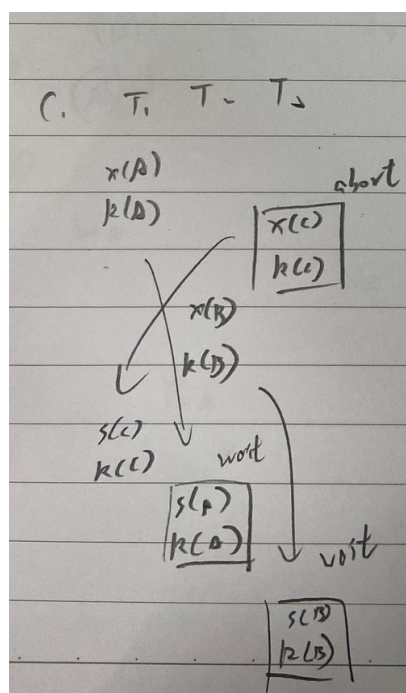 C. T₁ T₂ T₃
x(A)
abort
R(A)
x(C)
R(C)
x(B)
R(B)
s(C)
R(C)
wait
s(A)
R(A)
wait
s(B)
R(B)